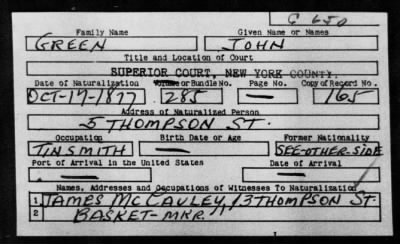 G 650
Family Name Given Name or Names
GREEN JOHN
Title and Location of Court
SUPERIOR COURT, NEW YORK COUNTY.
Date of Naturalization Volume or Bundle No. Page No. Copy of Record No.
OCT-17-1877 285 — 165
Address of Naturalized Person
5 THOMPSON ST.
Occupation Birth Date or Age Former Nationality
TINSMITH — SEE-OTHER-SIDE
Port of Arrival in the United States Date of Arrival
— —
Names, Addresses and Occupations of Witnesses To Naturalization
1 JAMES MCCAULEY, 13 THOMPSON ST.
2 BASKET-MKR. "